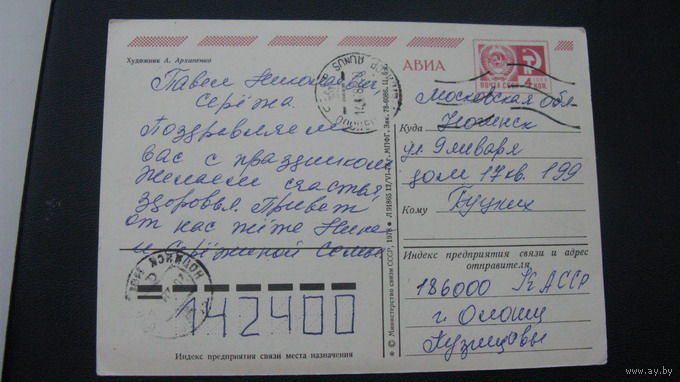 Художник А. Архипенко
Павел Николаевич
Серёжа.
Поздравляем
вас с праздником
желаем счастья,
здоровья. Привет
от нас тёте Нине
и Серёжиной семье
142400
Индекс предприятия связи места назначения
© Министерство связи СССР, 1978
АВИА
ПОЧТА СССР 4 КОП.
Московская обл
Куда Ногинск
ул 9 января
дом 17 кв. 199
Кому
Индекс предприятия связи и адрес
отправителя
186000 КАССР
г. Олонец
НОГИНСК
www.ay.by